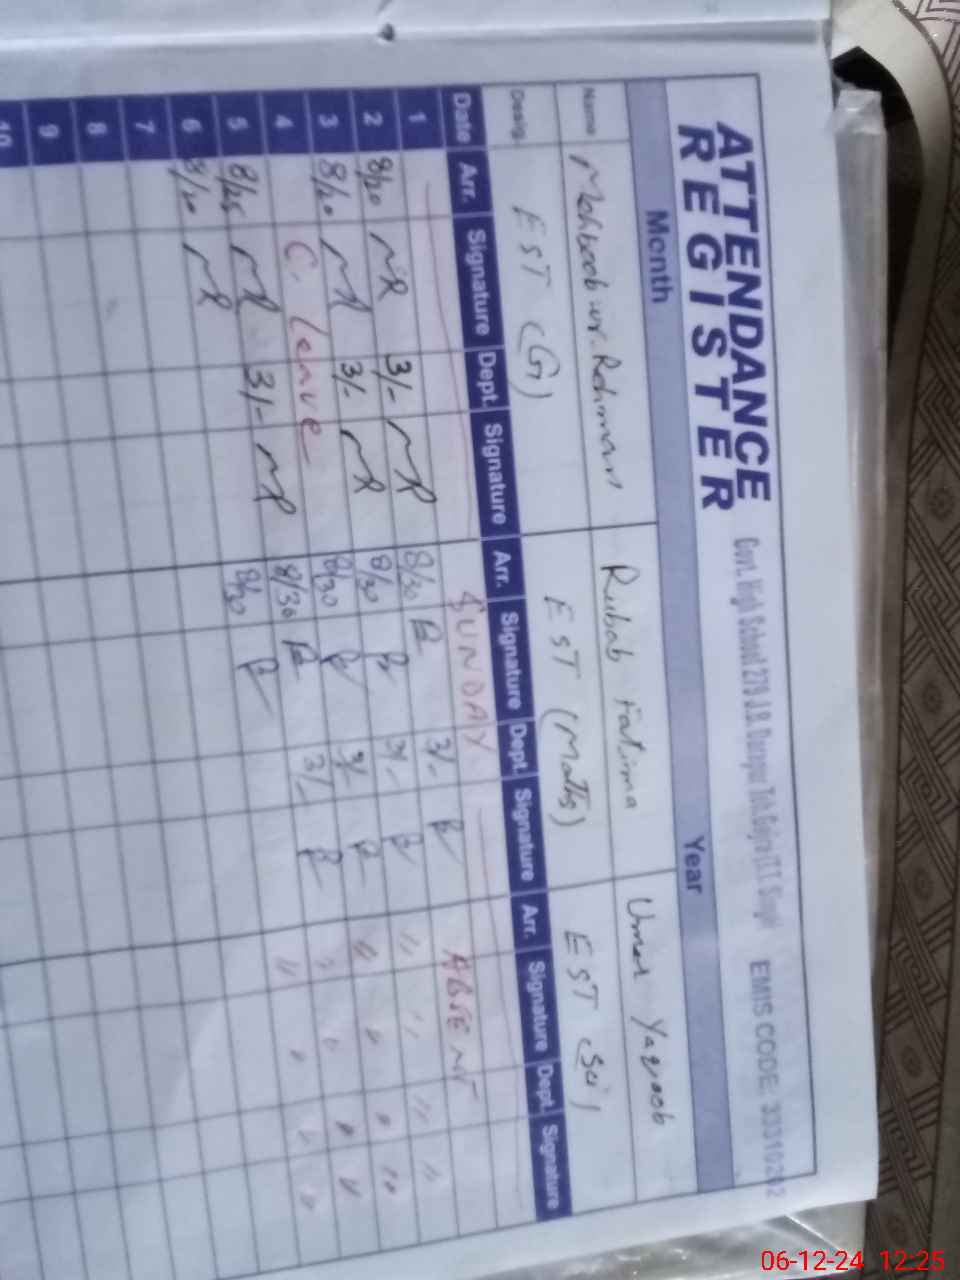 ATTENDANCE
REGISTER
Govt. High School 279 J.B.
EMIS CODE: 333102
Month
Year
Name
Rubab Fatima
Umer Yaqoob
Desig.
EST (G)
EST (Maths)
EST Sci)
Date Arr. Signature Dept. Signature Arr. Signature Dept. Signature Arr. Signature Dept. Signature
1 SUNDAY
2 8/20 MR 3/- MR 8/30 3/- ABSENT
3 8/20 MR 3/- MR 8/30 3/- " " " "
4 C. leave 8/30 3/- " " " "
5 8/25 MR 3/- MR 8/30 3/- " " " "
6 8/20 MR 8/30
7
8
9
10
06-12-24 12:25